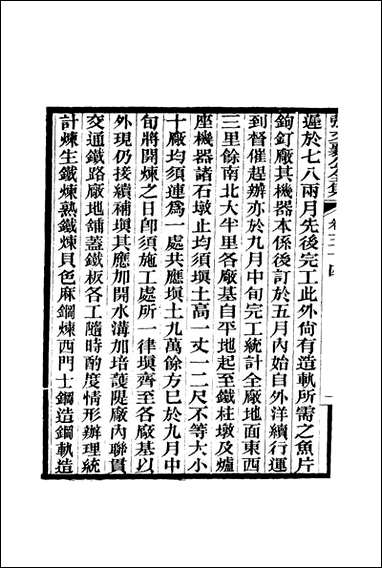 張文襄公全集 卷三十四
遲於七八兩月先後完工此外尙有造軌所需之魚片
鉤釘廠其機器本係後訂於五月內始自外洋續行運
到督催趕辦亦於九月中旬完工統計全廠地面東西
三里餘南北大半里各廠基自平地起至鐵柱墩及爐
座機器諸石墩止均須塡土高一丈一二尺不等大小
十廠均須運爲一處共應塡土九萬餘方巳於九月中
旬將開煉之日卽須施工處所一律塡齊至各廠基以
外現仍接續補塡其應加開水溝加培護隄廠內聯貫
交通鐵路廠地舖蓋鐵板各工隨時酌度情形辦理統
計煉生鐵煉熟鐵煉貝色麻鋼煉西門士鋼造鋼軌造